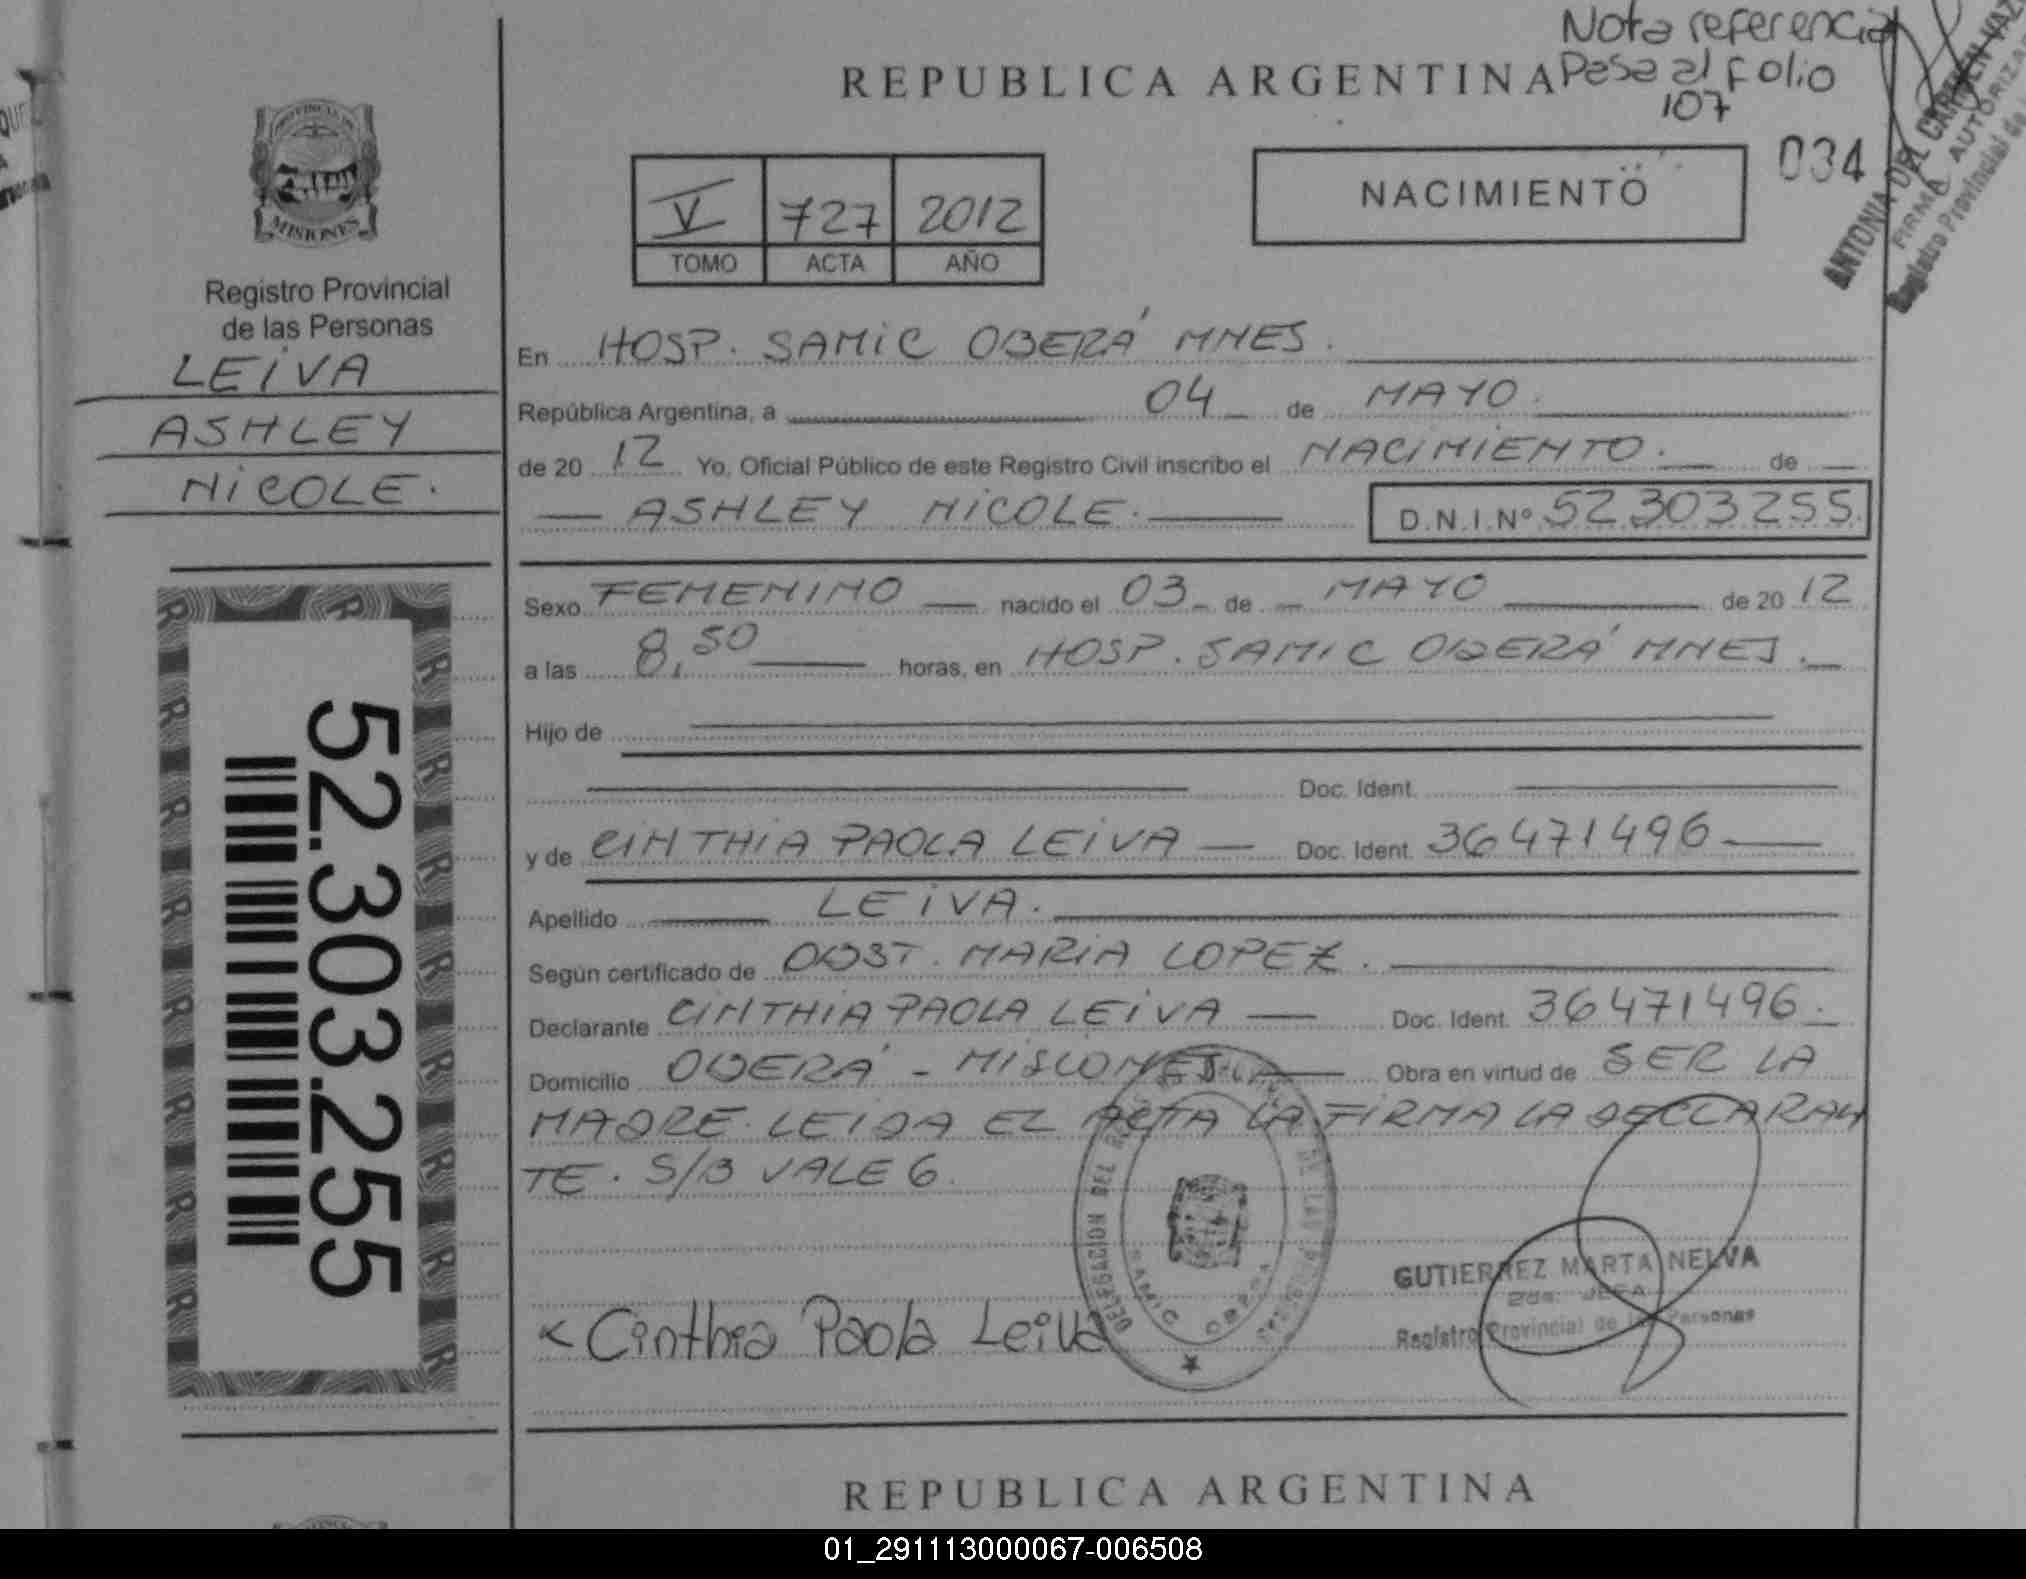 Nota referencial
Pasa al folio
107
REPUBLICA ARGENTINA
034
ANTONIA DEL CARMEN VAZ
FIRMA AUTORIZA
Registro Provincial de
PROVINCIA DE
MISIONES
Registro Provincial
de las Personas
LEIVA
ASHLEY
NICOLE.
V 727 2012
TOMO ACTA AÑO
NACIMIENTO
En HOSP. SAMIC OBERÁ MNES.
República Argentina, a 04 de MAYO.
de 20 12 Yo, Oficial Público de este Registro Civil inscribo el NACIMIENTO. de
ASHLEY NICOLE. D.N.I.Nº 52.303.255
Sexo FEMENINO nacido el 03 de MAYO de 20 12
a las 8,50 horas, en HOSP. SAMIC OBERÁ MNES.
Hijo de
Doc. Ident.
y de CINTHIA PAOLA LEIVA Doc. Ident. 36471496
Apellido LEIVA.
Según certificado de OBST. MARIA LOPEZ.
Declarante CINTHIA PAOLA LEIVA Doc. Ident. 36471496.
Domicilio OBERÁ - MISIONES Obra en virtud de SER LA
MADRE. LEIDA EL ACTA LA FIRMA LA DECLARAN
TE. S/B VALE 6.
52.303.255
DELEGACION DEL
SAMIC OBERA
< Cinthia Paola Leiva
GUTIERREZ MARTA NELVA
2da. JEFA
Registro Provincial de las Personas
REPUBLICA ARGENTINA
01_291113000067-006508